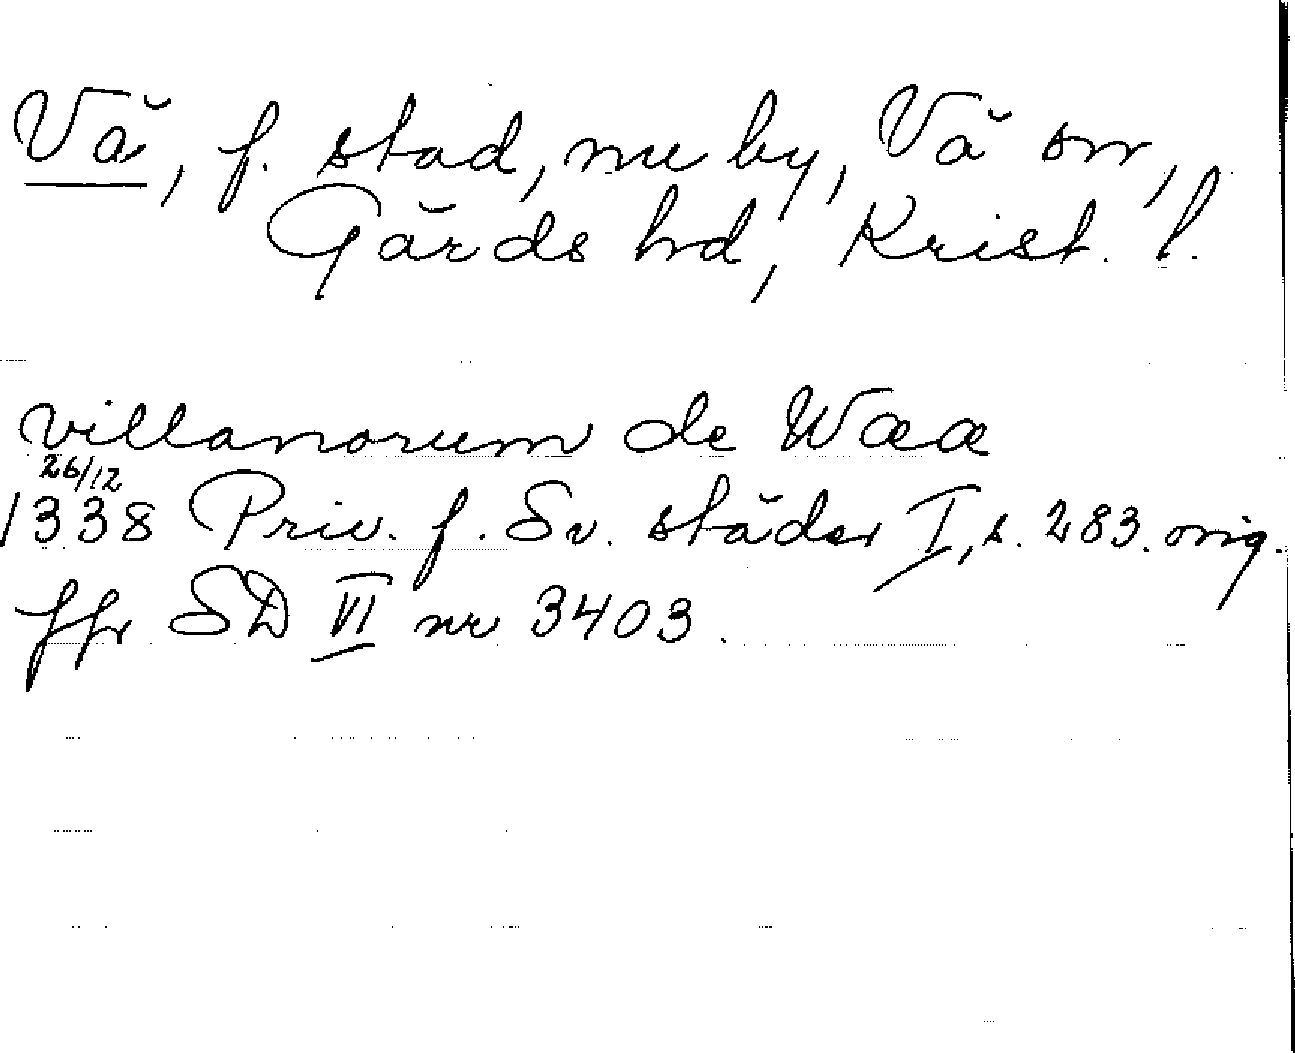 Vä, f. stad, nu by, Vä sn,
Gärds hd, Krist. l.
villanorum de Wææ
26/12
1338 Priv. f. Sv. städer I, s. 283. orig.
jfr SD VI nr 3403.